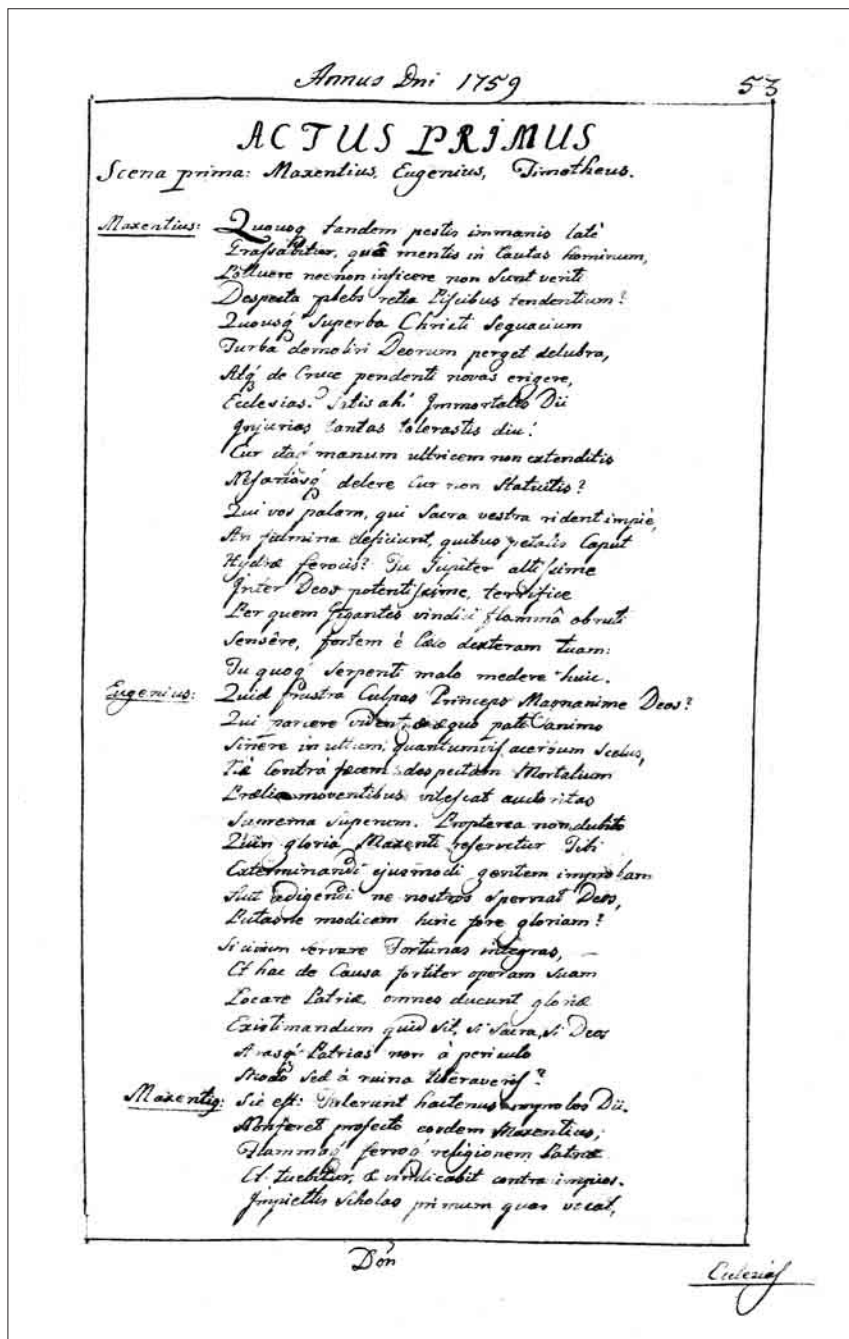 Annus Dni 1759 53
ACTUS PRIMUS
Scena prima: Maxentius, Eugenius, Timotheus.
Maxentius: Quousq tandem pestis immanis latè
Grassabitur, quâ mentis in Cautas hominum,
Polluere nec non inficere non sunt veriti
Despecta plebs retia Piscibus tendentium?
Quousq́ Superba Christi Sequacium
Turba demoliri Deorum perget delubra,
Atq́ de Cruce pendenti novas erigere,
Ecclesias. Satis ah! Immortales Dii
Injurias tantas tolerastis diu!
Cur itaq́ manum ultricem non extenditis
Nefariosq́ delere Cur non Statuitis?
Qui vos palam, qui Sacra vestra rident impiè,
An fulmina deficiunt, quibus petatis Caput
Hydræ ferocis? Tu Jupiter altissime
Inter Deos potentissime, terrifice
Per quem Gigantes vindici flammâ obruti
Sensêre, fortem è Cælo dexteram tuam:
Tu quoq́ Serpenti malo medere huic.
Eugenius: Quid frustra Culpas Princeps Magnanime Deos?
Qui parcere videntur æquo pati animo
Sinere inultum, quantumvis acerbum Scelus,
Nè Contrà fæcem despectam Mortalium
Prælia moventibus vilescat auctoritas
Suprema Superum. Propterea non dubito
Quin gloria Maxenti reservetur Tibi
Exterminandi ejusmodi gentem improbam
Aut adigendi ne nostros spernat Deos,
Putasne modicam hinc fore gloriam?
Si civium servare Fortunas integras,
Et hac de Causa fortiter operam Suam
Locare Patriæ, omnes ducunt gloriæ
Existimandum quid sit, si Sacra, si Deos
Arasq́ Patrias non à periculo
Modò sed à ruina liberaveris?
Maxentiq: Sic est: Tulerunt hactenus improbos Dii.
Non feret profecto eosdem Maxentius;
Flammaq́ ferroq́ religionem Patriæ
Et tuebitur, & vindicabit contra impios.
Impietatis Scholas primum quas vocat,
Don
Ecclesias